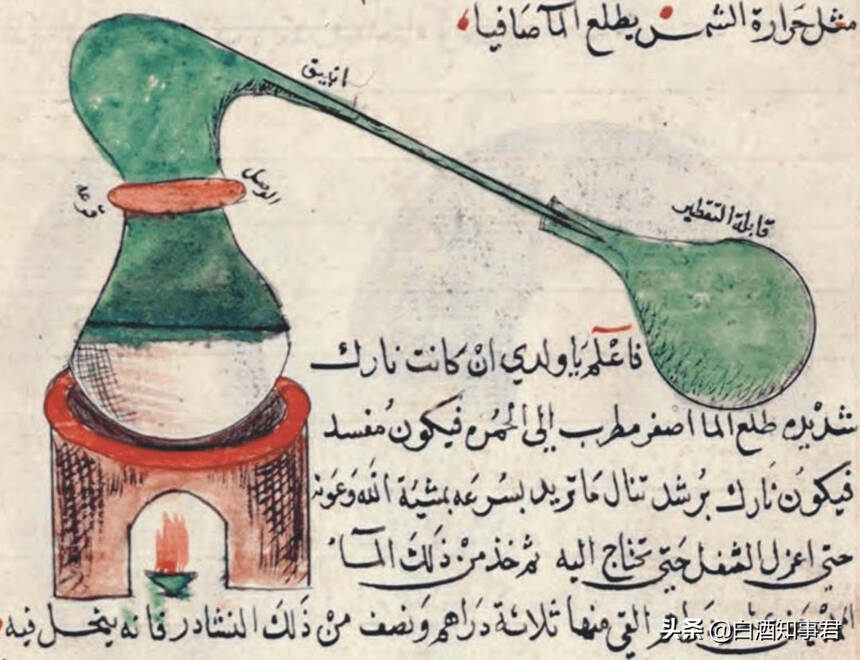 مثل حرارة الشمس يطلع المآ صافيا
انبيق
الوصل
قرعه
قابلة التقطير
فاعْلم يَا ولدي انْ كانت نارك
شديده طلع الما اصفر مطرب إلى الحُمره فيكونُ مُفسد
فيكونُ نَارك برُشد تنال مَا تريد بسُرعَه بمشيّة اللّه وَعَونه
حتي اعزل الثفل حَتي تحتاج اليه ثم خذ منْ ذلكَ المآء
القي منهَا ثلاثة دَراهم وَنصف منْ ذلكَ النشادر فانه ينحل فيه
头条 @白酒知事君